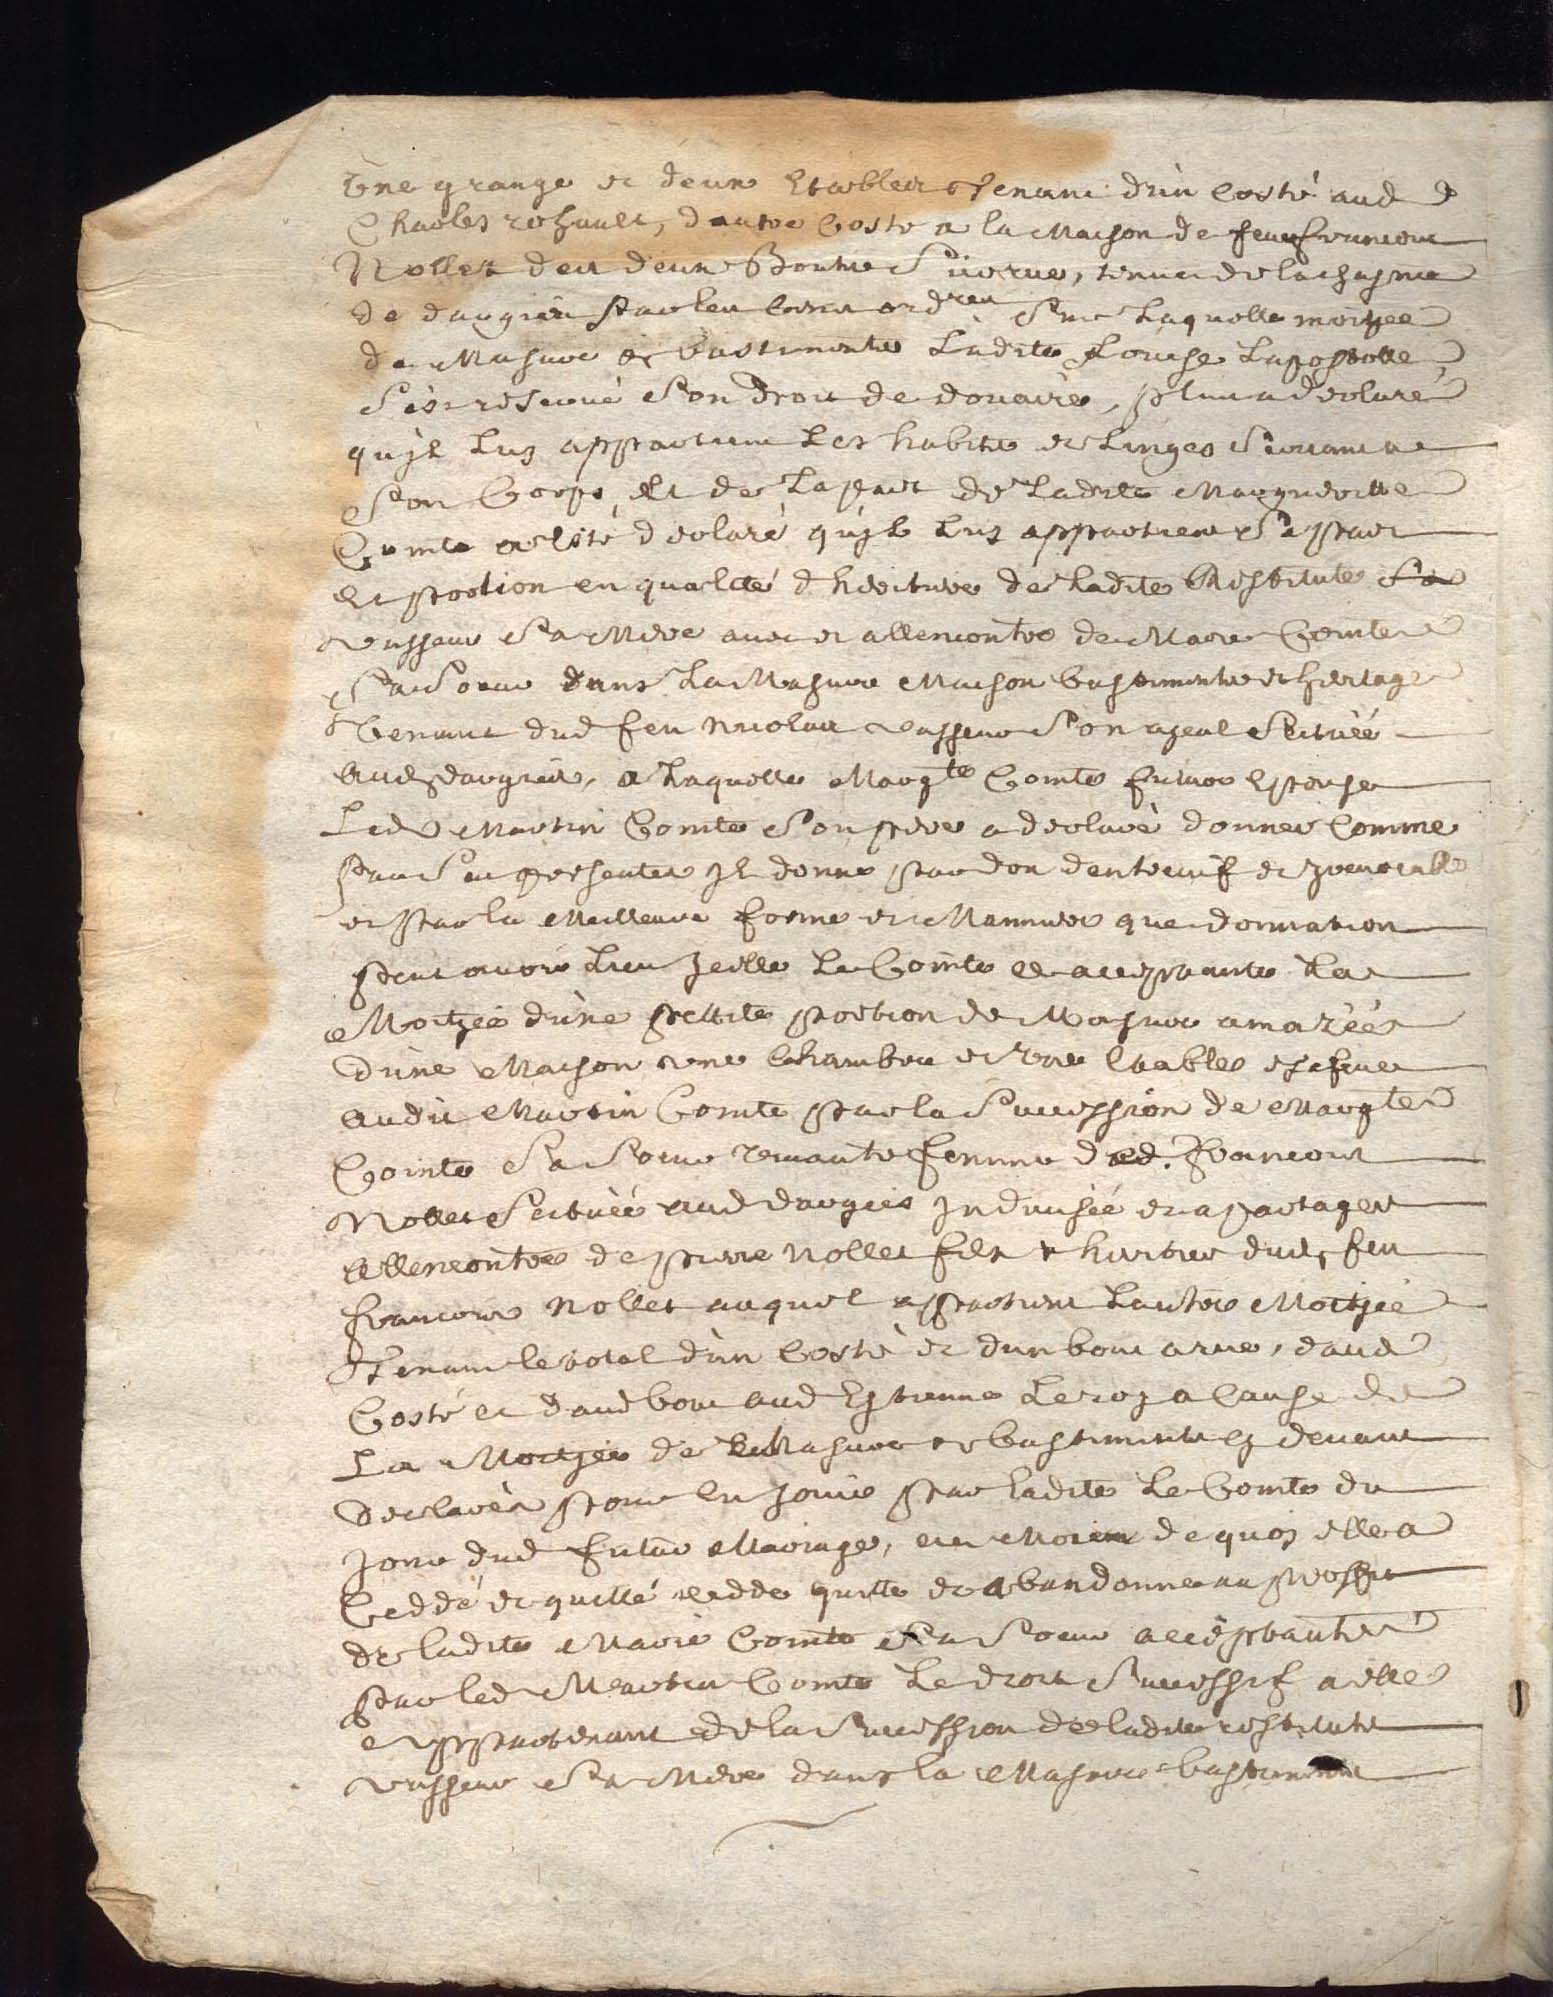 Une grange et deux Etables tenant dun Costé aud
Charles , dautre Costé a la Maison de feu francois
Nollet des deux Bouts Sur rue, tenue de la
de dargies par les Sur laquelle moityee
de Masure et bastiments Ladite Louise Lapostolle
Sest reservé Son droit de douaire, plus a declaré
quil Luy appartient Les habits et Linges Servant a
Son Corps, Et de La part de Ladite Marguerite
Comte a esté declaré quil Luy appartient Sa part
Et portion en qualité dheritiere de Ladite Restitute Le
vasseur Sa Mere avec et allencontre de Marie Comte
Sa Soeur dans La Masure Maison bastiments et heritage
Venant dud feu Nicolas vasseur Son ayeul Scituéé
Aud dargies, a Laquelle Margte Comte future Espouse
Led Martin Comte Son pere a declaré donner Comme
par Ces presentes Il donne par don dentrevif et Irrevocable
et par la Meilleure forme et Manniere que donnation
peut avoir Lieu Icelle Le Comte acceptante La
Moityée dune petite portion de Masure amazéé
dune Maison une Chambre et une Etables eschue
audit Martin Comte par la Succession de Margte
Comte Sa Soeur vivante femme dud. francois
Nollet Scituéé aud dargies Indivisée et a partager
allencontre de pierre Nollet fils et heritier dud. feu
francois Nollet auquel appartient Lautre Moityée
Tenant le total dun Costé et dun bout a rue, daud
Costé et daud bout aud Estienne Leroy a Cause de
La Moityée de Masure et bastiments Cy devant
declarés pour En Jouir par ladite Le Comte du
Jour dud futur Mariage, au Moien de quoy elle a
Ceddé et quitté cedde quitte et abandonne au proffit
de ladite Marie Comte Sa Soeur acceptante
par led Martin Comte Le droit Successif a elle
appartenant de la Succession de ladite restitute
vasseur Sa Mere dans la Masure bastiments